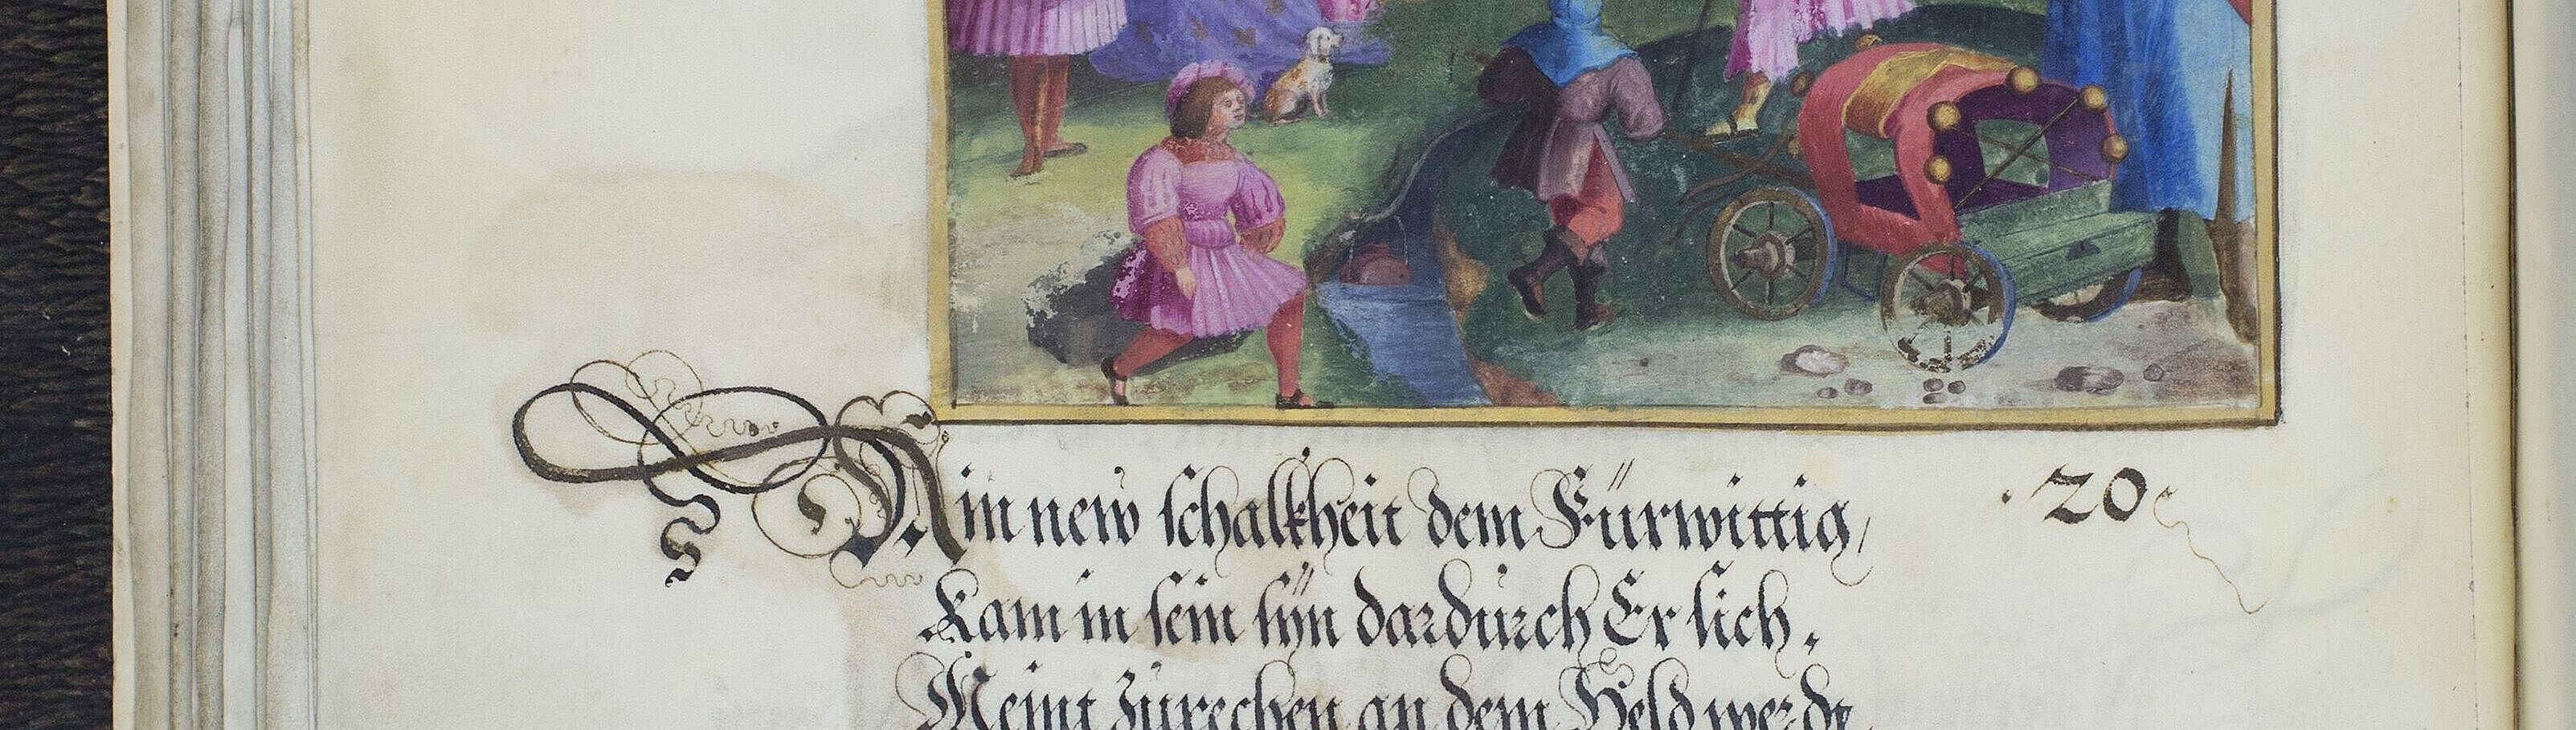 Ain new schalkheit dem Fürwittig / · 20 ·
Kam in sein syn dardurch Er sich .
Meint zůrechen an dem Held werdt